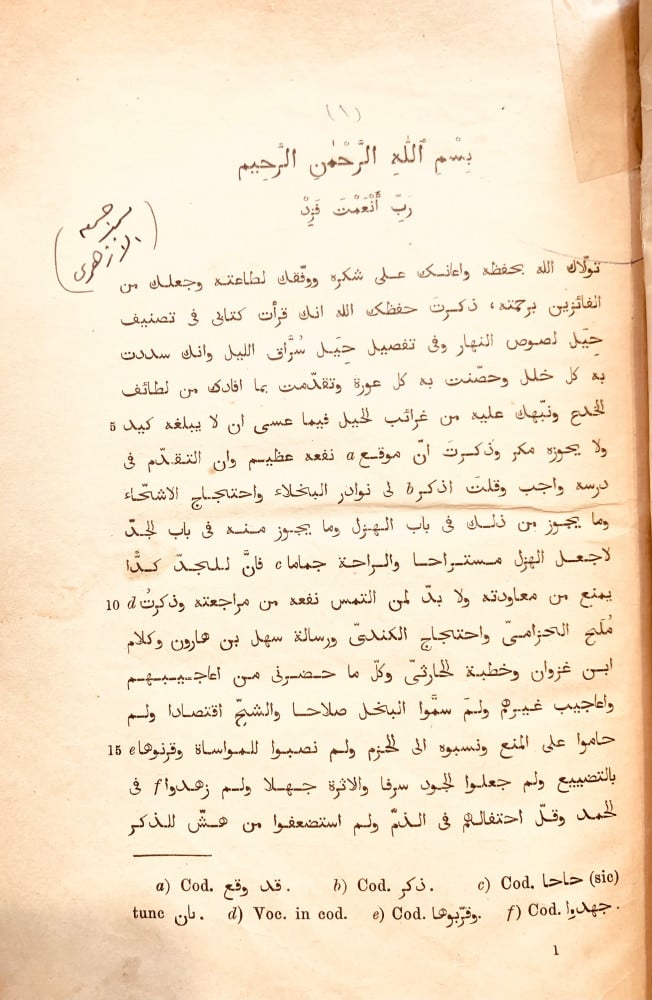 (١)
بِسْمِ ٱللّٰهِ ٱلرَّحْمٰنِ ٱلرَّحِيمِ
رَبِّ أَنْعَمْتَ فَزِدْ
الازهرى
تولّاك الله بحفظه واعانك على شكره ووفّقك لطاعته وجعلك من
الفائزين برحمته، ذكرتَ حفظك الله انك قرأت كتابى فى تصنيف
حِيَل لصوص النهار وفى تفصيل حِيَل سُرَّاق الليل وانك سددت
به كل خلل وحصّنت به كل عورة وتقدّمت بما افادك من لطائف
الخدع ونبّهك عليه من غرائب الحيل فيما عسى ان لا يبلغه كيد 5
ولا يحوزه مكر وذكرتَ انّ موقع a نفعه عظيم وان التقدّم فى
درسه واجب وقلتَ اذكر b لى نوادر البخلاء واحتجاج الاشحّاء
وما يجوز من ذلك فى باب الهزل وما يجوز منه فى باب الجدّ
لاجعل الهزل مستراحا والراحة جماما c فانَّ للجدّ كدًّا
يمنع من معاودته ولا بدّ لمن التمس نفعه من مراجعته وذكرتُ d 10
مُلَح الحزامىّ واحتجاج الكندىّ ورسالة سهل بن هارون وكلام
ابن غزوان وخطبة الحارثىّ وكلّ ما حضرنى من اعاجيبهم
واعاجيب غيرهم ولمَ سمَّوا البخل صلاحا والشحّ اقتصادا ولم
حاموا على المنع ونسبوه الى الحزم ولم نصبوا للمواساة وقرنوها e 15
بالتضييع ولم جعلوا الجود سرفا والاثرة جهلا ولم زهدوا f فى
الحمد وقلّ احتفالهم فى الذمّ ولم استضعفوا من هشّ للذكر
a) Cod. قد وقع. b) Cod. ذكر. c) Cod. حاحا (sic)
tunc بان. d) Voc. in cod. e) Cod. وقرّبوها. f) Cod. جهدوا.
1